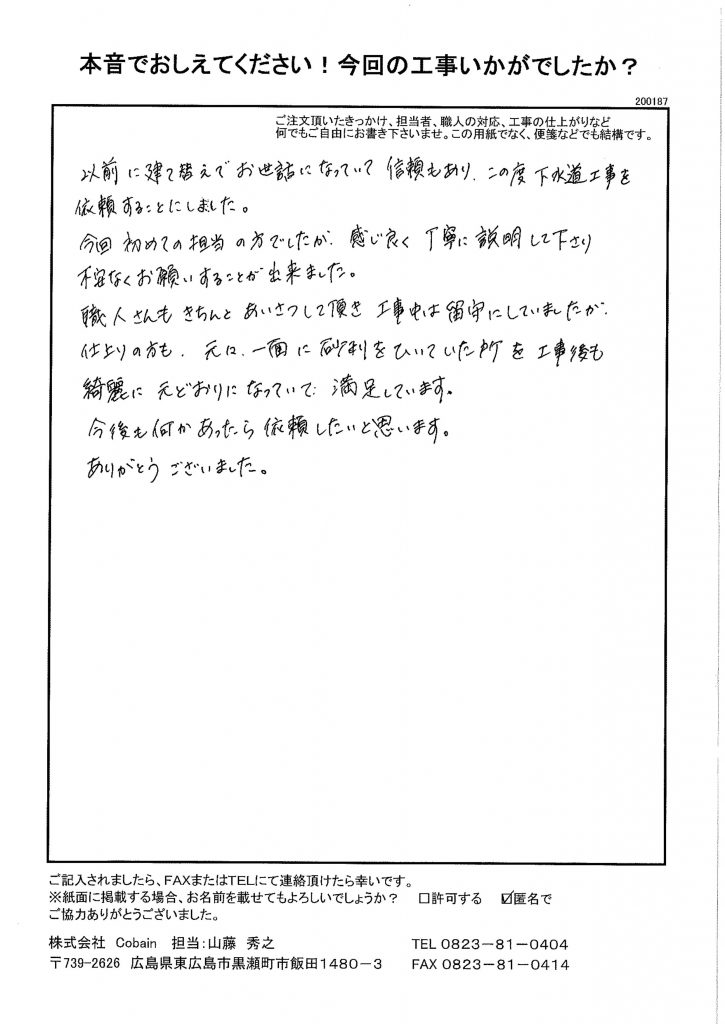 本音でおしえてください！今回の工事いかがでしたか？
200187
ご注文頂いたきっかけ、担当者、職人の対応、工事の仕上がりなど
何でもご自由にお書き下さいませ。この用紙でなく、便箋などでも結構です。
以前に建て替えでお世話になっていて信頼もあり、この度下水道工事を
依頼することにしました。
今回初めての担当の方でしたが、感じ良く丁寧に説明して下さり
不安なくお願いすることが出来ました。
職人さんもきちんとあいさつして頂き工事中は留守にしていましたが、
仕上りの方も、元は、一面に砂利をひいていた所を工事後も
綺麗に元どおりになっていて、満足しています。
今後も何かあったら依頼したいと思います。
ありがとうございました。
ご記入されましたら、FAXまたはTELにて連絡頂けたら幸いです。
※紙面に掲載する場合、お名前を載せてもよろしいでしょうか？ □許可する ☑匿名で
ご協力ありがとうございました。
株式会社 Cobain 担当：山藤 秀之 TEL 0823－81－0404
〒739-2626 広島県東広島市黒瀬町市飯田1480－3 FAX 0823－81－0414